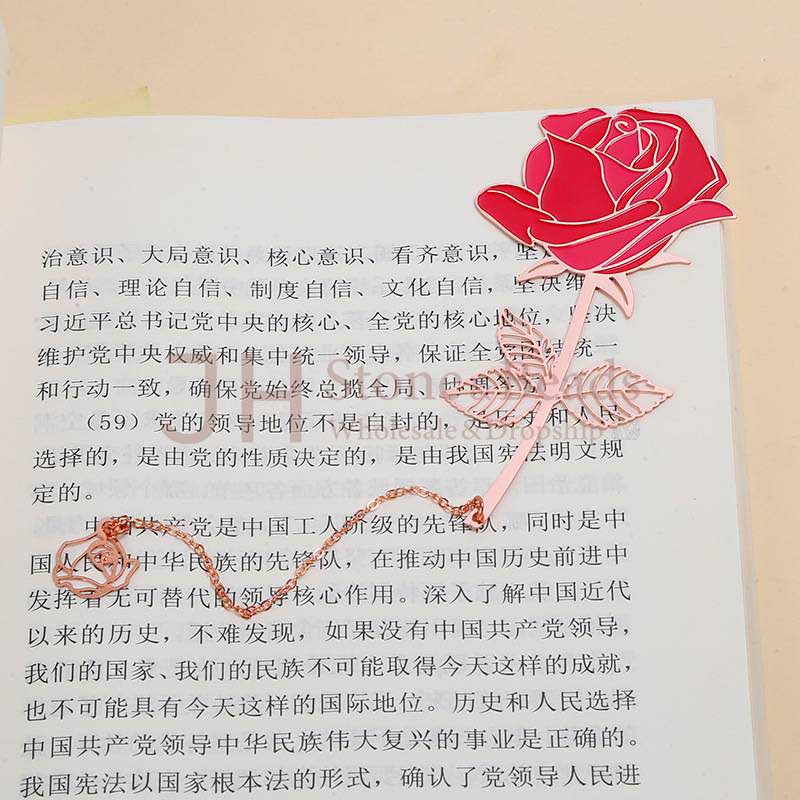 治意识、大局意识、核心意识、看齐意识，坚
自信、理论自信、制度自信、文化自信，坚决维
习近平总书记党中央的核心、全党的核心地位，坚决
维护党中央权威和集中统一领导，保证全党团结统一
和行动一致，确保党始终总揽全局、协调各方
JH Stone Beads
Wholesale & Dropship
（59）党的领导地位不是自封的，是历史和人民
选择的，是由党的性质决定的，是由我国宪法明文规
定的。
中国共产党是中国工人阶级的先锋队，同时是中
国人民和中华民族的先锋队，在推动中国历史前进中
发挥着无可替代的领导核心作用。深入了解中国近代
以来的历史，不难发现，如果没有中国共产党领导，
我们的国家、我们的民族不可能取得今天这样的成就，
也不可能具有今天这样的国际地位。历史和人民选择
中国共产党领导中华民族伟大复兴的事业是正确的。
我国宪法以国家根本法的形式，确认了党领导人民进